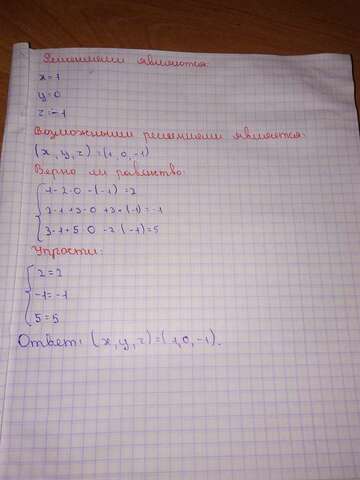 Решениями являются:
x=1
y=0
z=-1
Возможными решениями является:
(x,y,z)=(1,0,-1)
Верно ли равенство:
1-2·0-(-1)=2
2·1+3·0+3·(-1)=-1
3·1+5·0-2·(-1)=5
Упрости:
2=2
-1=-1
5=5
Ответ: (x,y,z)=(1,0,-1).